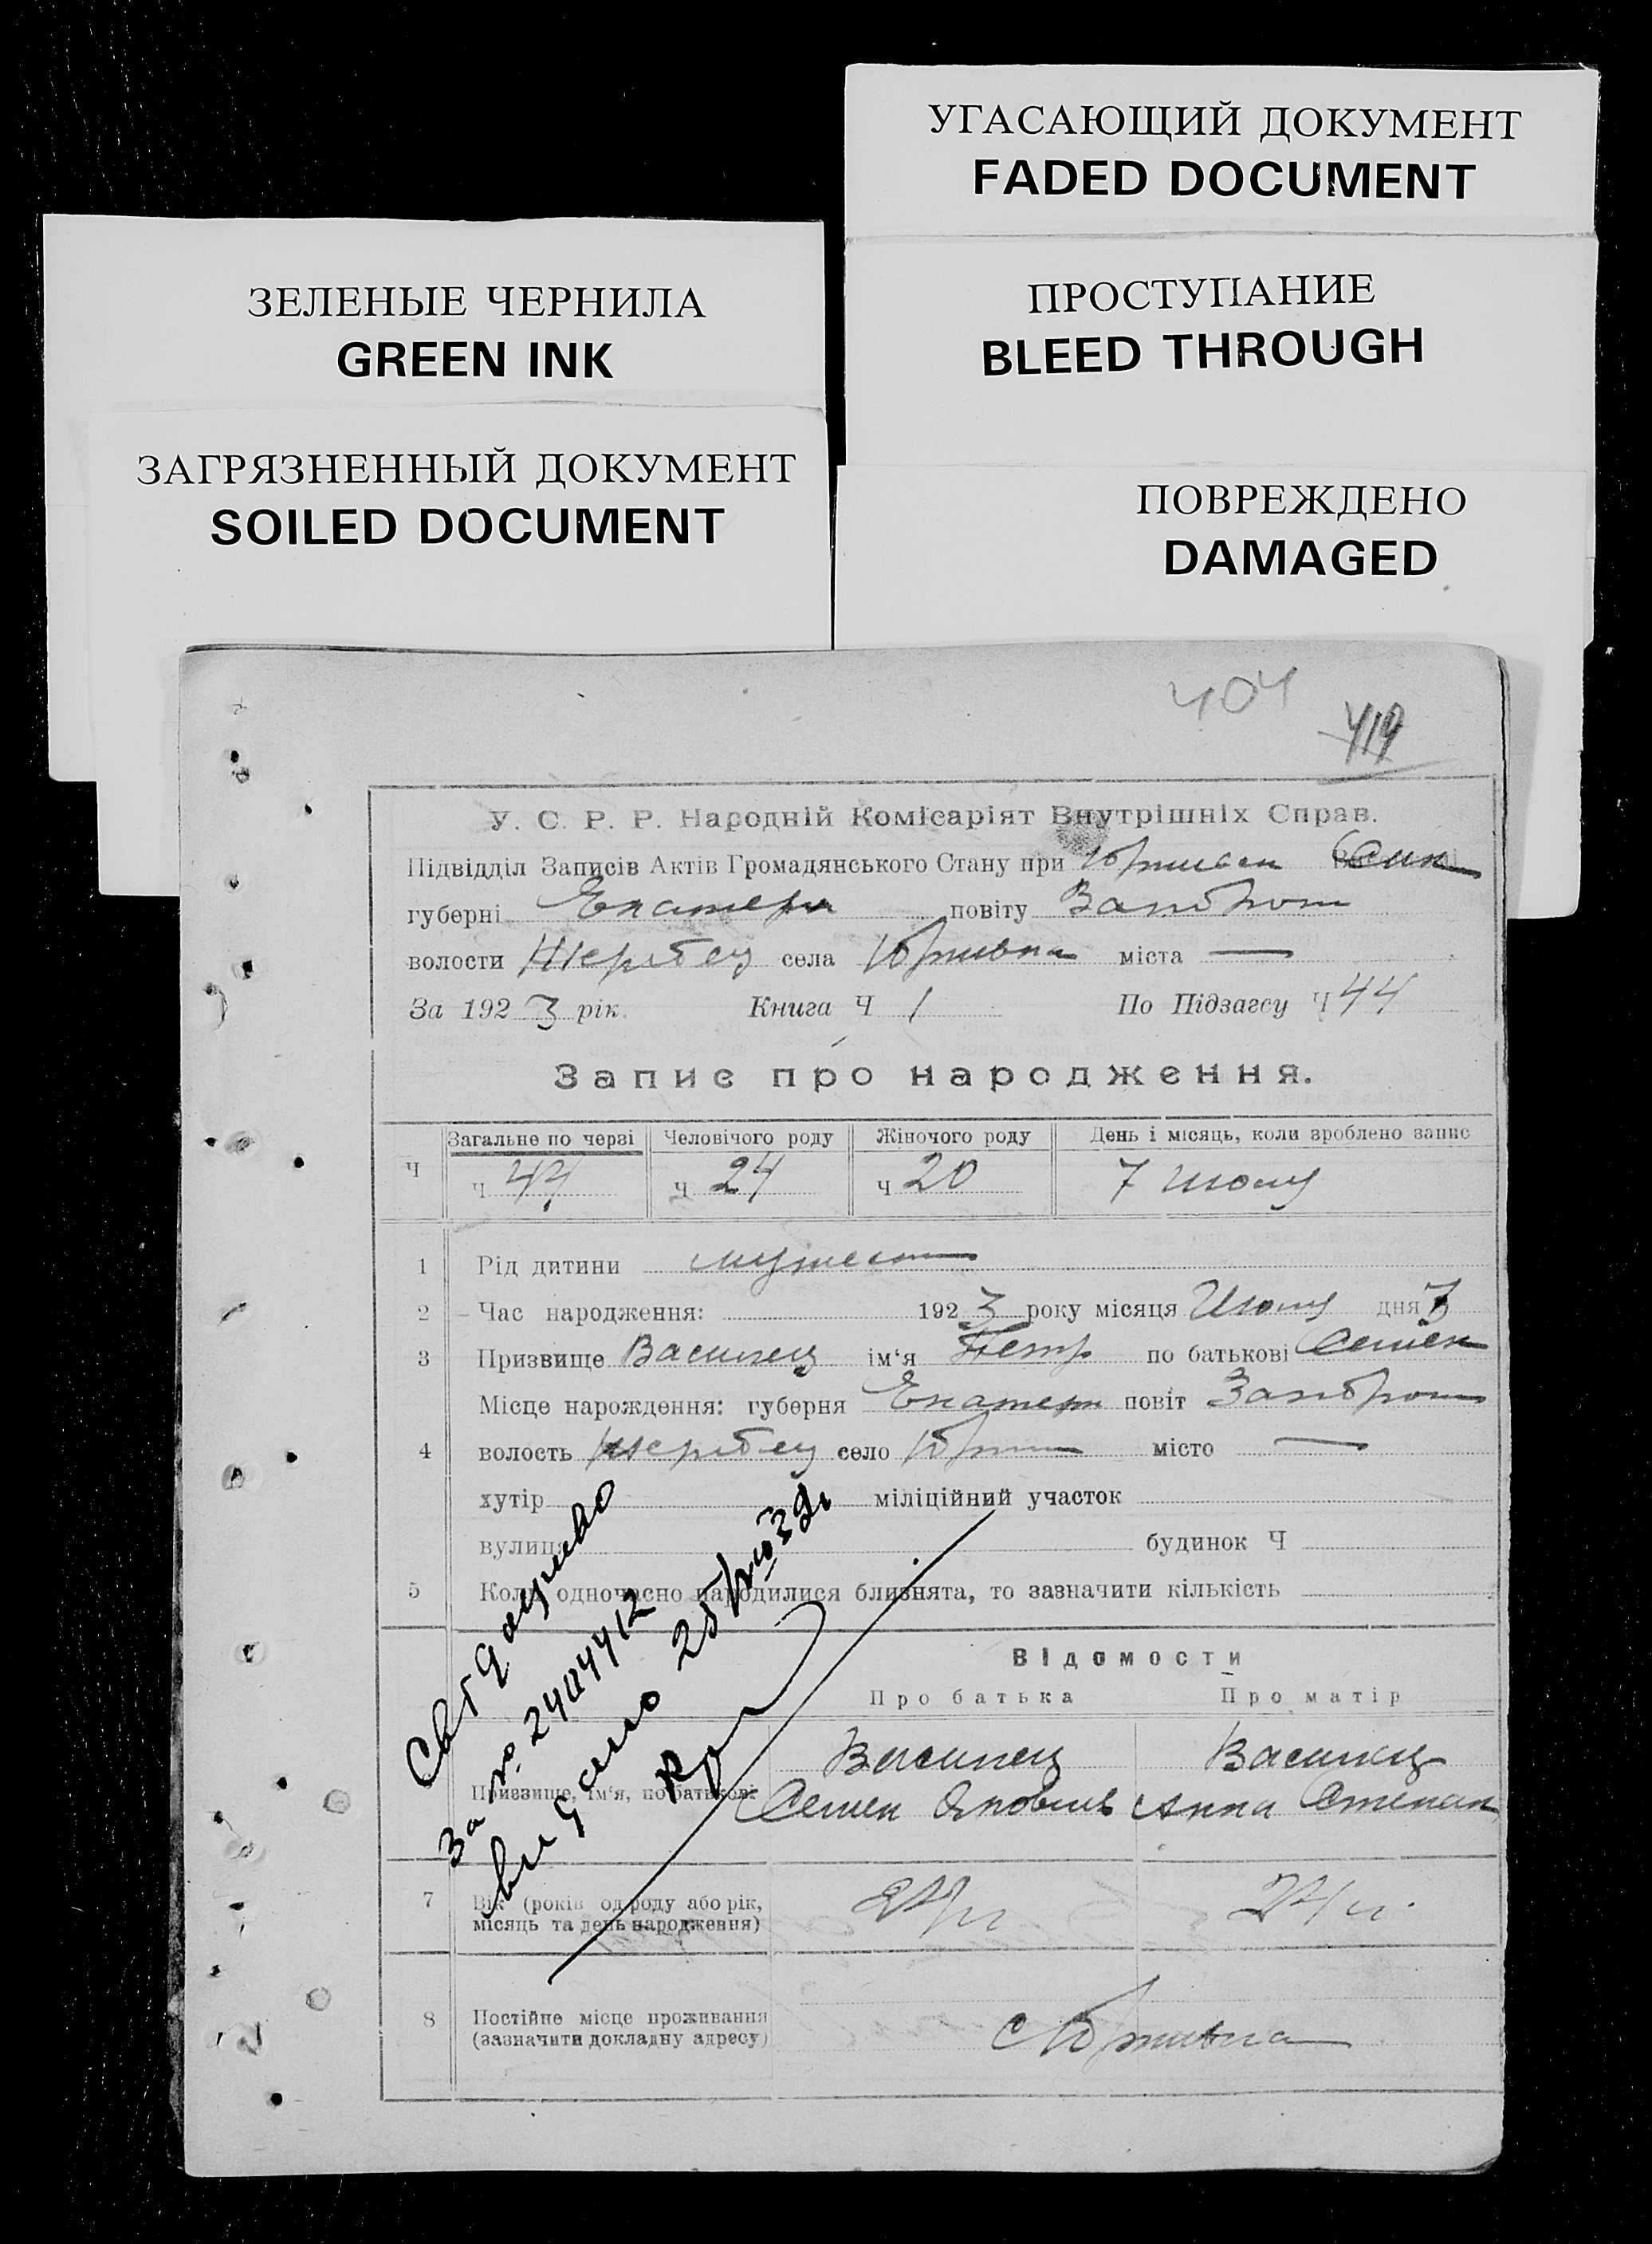 УГАСАЮЩИЙ ДОКУМЕНТ
FADED DOCUMENT
ЗЕЛЕНЫЕ ЧЕРНИЛА
GREEN INK
ПРОСТУПАНИЕ
BLEED THROUGH
ЗАГРЯЗНЕННЫЙ ДОКУМЕНТ
SOILED DOCUMENT
ПОВРЕЖДЕНО
DAMAGED
404
419
У. С. Р. Р. Народній Комісаріят Внутрішніх Справ.
Підвідділ Записів Актів Громадянського Стану при
губерні Екатери повіту Запорож
волости Жеребец села Юрківка міста —
За 1923 рік. Книга Ч 1 По Підзагсу Ч 44
Запис про народження.
Загальне по черзі Человічого роду Жіночого роду День і місяць, коли зроблено запис
Ч ч 44 ч 24 ч 20 7 Июлу
1 Рід дитини мужеск
2 Час народження: 1923 року місяця Июлу дня 7
3 Призвище Василец ім'я Петр по батькові Семен
Місце нарождення: губерня Екатер повіт Запорож
4 волость Жеребец село місто —
хутір міліційний участок
вулиця будинок Ч
5 Коли одночасно народилися близнята, то зазначити кількість
Відомости
Про батька Про матір
Призвище, ім'я, по батькові
Василец Василец
Семен Яковлев Анна Степан
7 Вік (років од роду або рік, 24 л 24 л.
місяць та день народження)
8 Постійне місце проживання
(зазначити докладну адресу)
с Юрківка
за № 2404412